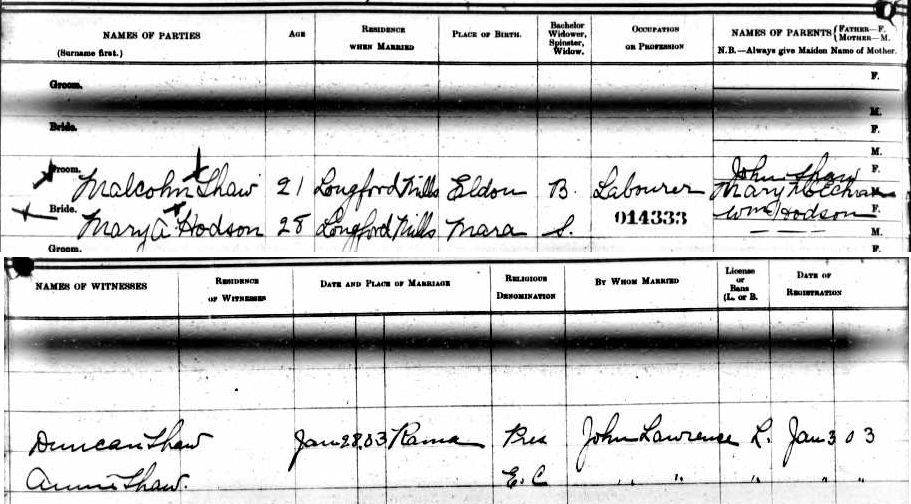 NAMES OF PARTIES
(Surname first.)
AGE
RESIDENCE
WHEN MARRIED
PLACE OF BIRTH.
Bachelor
Widower,
Spinster,
Widow.
OCCUPATION
OR PROFESSION
NAMES OF PARENTS { FATHER—F.
MOTHER—M.
N.B.—Always give Maiden Name of Mother.
Groom. F.
M.
Bride. F.
M.
Groom. Malcolm Shaw 21 Longford Mills Eldon B. Labourer John Shaw F.
Mary
Bride. Mary A Hodson 28 Longford Mills Mara S. 014333 Wm Hodson F.
— — — M.
Groom. F.
NAMES OF WITNESSES
RESIDENCE
OF WITNESSES
DATE AND PLACE OF MARRIAGE
RELIGIOUS
DENOMINATION
BY WHOM MARRIED
License
or
Bans
(L. or B.
DATE OF
REGISTRATION
Duncan Shaw Jan 28.03 Rama Pres John Lawrence L. Jan 3 03
Annie Shaw. E. C " " " " "